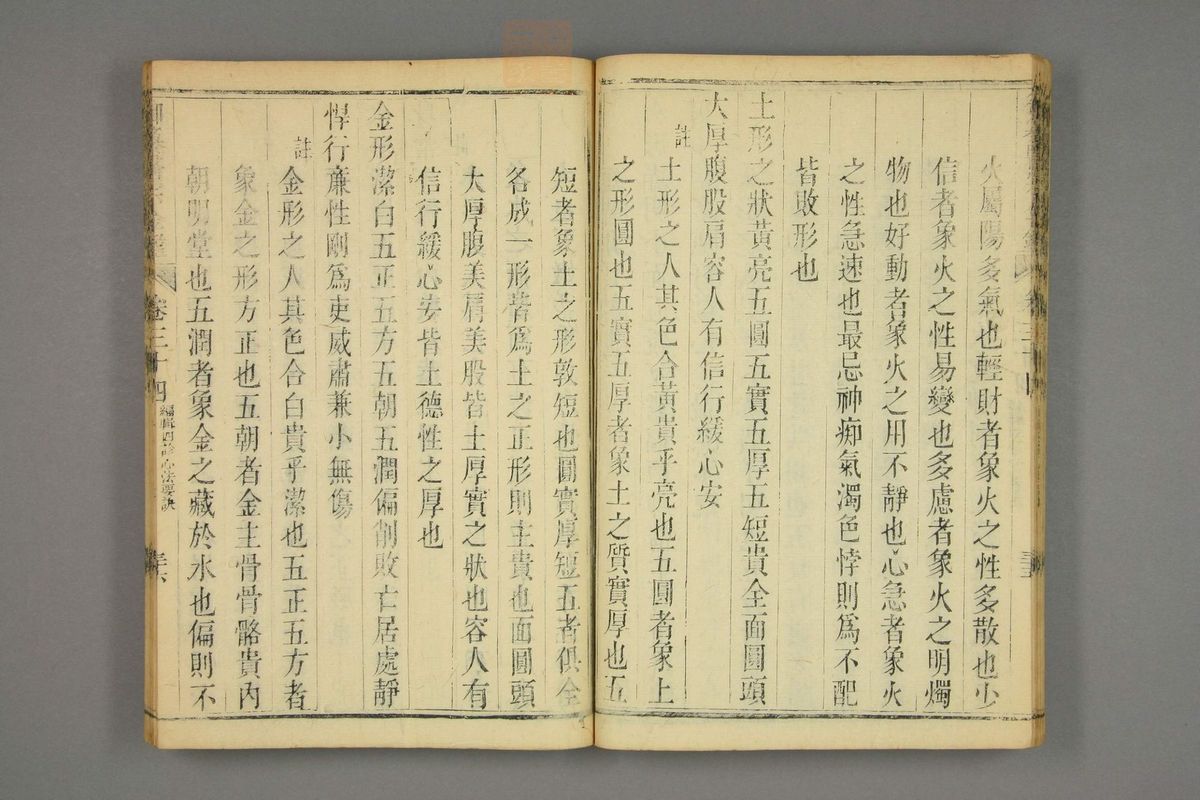 火屬陽多氣也輕財者象火之性多散也少
信者象火之性易變也多慮者象火之明燭
物也好動者象火之用不靜也心急者象火
之性急速也最忌神痴氣濁色悖則為不配
皆敗形也
土形之狀黃亮五圓五實五厚五短貴全面圓頭
大厚腹股肩容人有信行緩心安
註
土形之人其色合黃貴乎亮也五圓者象土
之形圓也五實五厚者象土之質實厚也五
短者象土之形敦短也圓實厚短五者俱全
各成一形皆為土之正形則主貴也面圓頭
大厚腹美肩美股皆土厚實之狀也容人有
信行緩心安皆土德性之厚也
金形潔白五正五方五朝五潤偏削敗亡居處靜
悍行廉性剛為吏威肅兼小無傷
註
金形之人其色合白貴乎潔也五正五方者
象金之形方正也五朝者金主骨骨骼貴內
朝明堂也五潤者象金之藏於水也偏則不
卷三十四
編輯四診心法要訣
三六